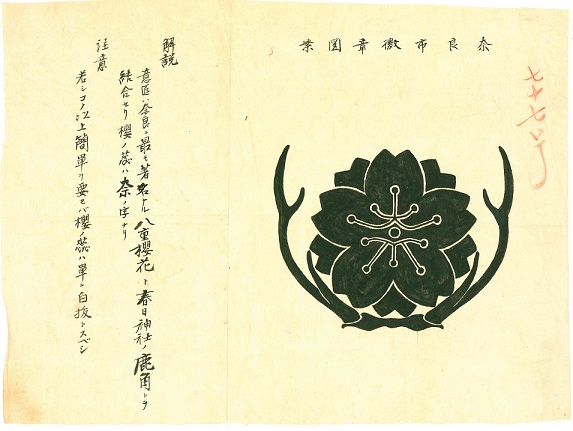 奈良市徽章図案
七十七号
解説
意匠ハ奈良ニ最モ著名ナル八重櫻花ト春日神社ノ鹿角トヲ
結合セリ櫻ノ蕊ハ奈ノ字ナリ
注意
若シコノ以上簡単ヲ要セバ櫻ノ蕊ハ単ニ白抜トスベシ